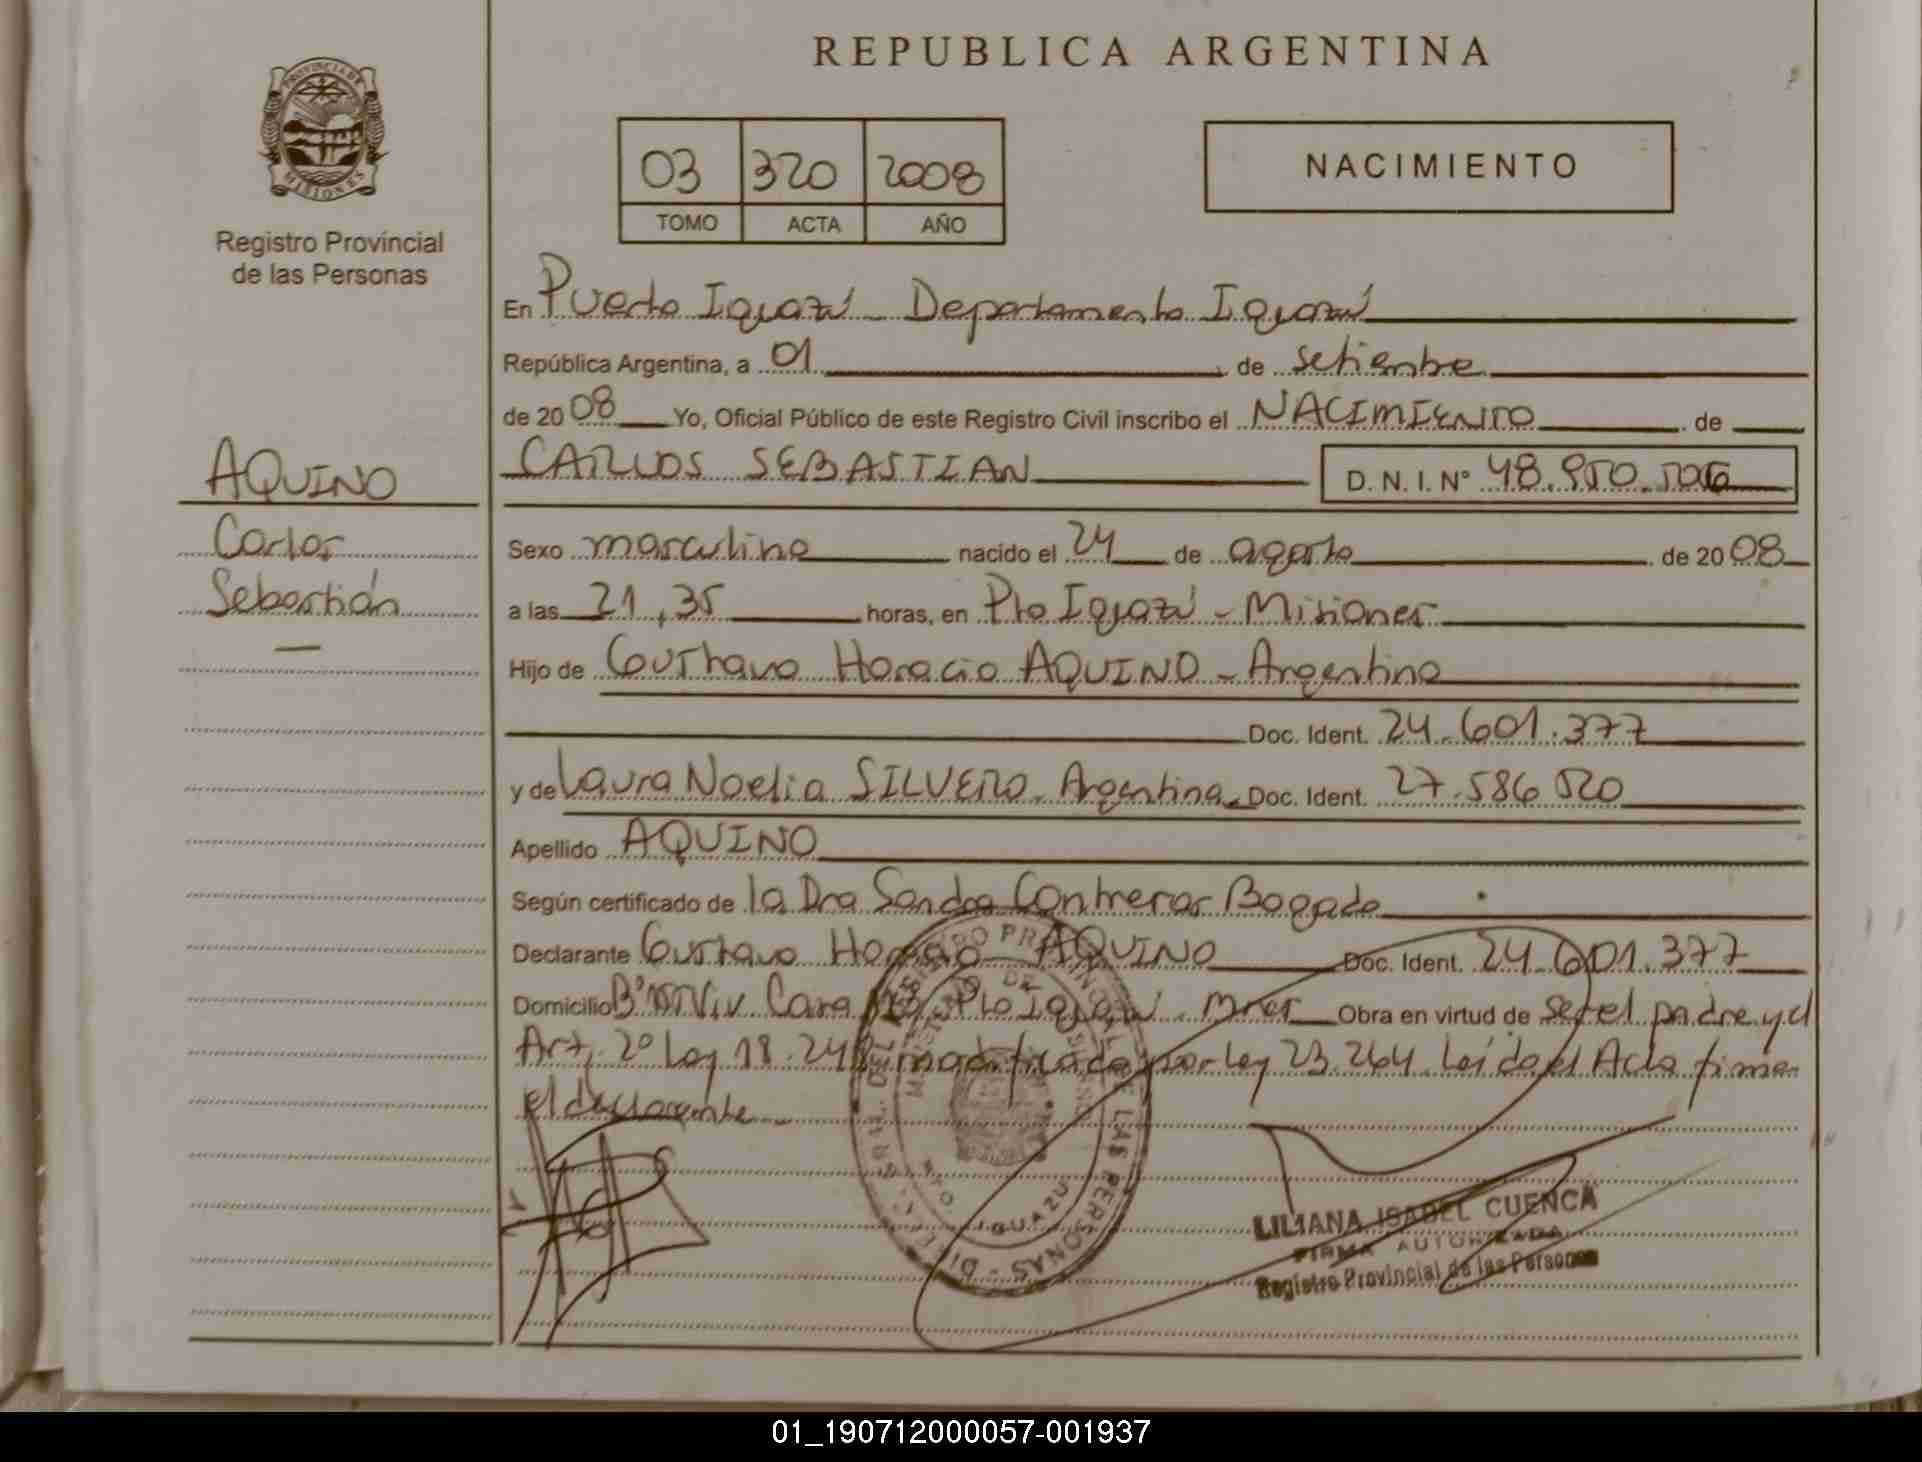 PROVINCIA DE
MISIONES
Registro Provincial
de las Personas
AQUINO
Carlos
Sebastián
REPUBLICA ARGENTINA
03 320 2008
TOMO ACTA AÑO
NACIMIENTO
En Puerto Iguazú - Departamento Iguazú
República Argentina, a 01 de setiembre
de 2008 Yo, Oficial Público de este Registro Civil inscribo el NACIMIENTO de
CARLOS SEBASTIAN D. N. I. N°
Sexo masculino nacido el 24 de agosto de 2008
a las 21,35 horas, en Pto Iguazú - Misiones
Hijo de Gustavo Horacio AQUINO - Argentino
Doc. Ident. 24.601.377
y de Laura Noelia SILVERO - Argentina - Doc. Ident. 27.586.520
Apellido AQUINO
Según certificado de la Dra Sandra Contreras Bogado
Declarante Gustavo Horacio AQUINO Doc. Ident. 24.601.377
Domicilio Viv. Casa Pto Iguazú - Mnes Obra en virtud de ser el padre y el
Art. 2º Ley 18.248 modificado por Ley 23.264. Leída el Acta firma
el declarante
REGISTRO PROVINCIAL DE LAS PERSONAS
MINISTERIO DE
PTO. IGUAZU
LILIANA ISABEL CUENCA
FIRMA AUTORIZADA
Registro Provincial de las Personas
01_190712000057-001937